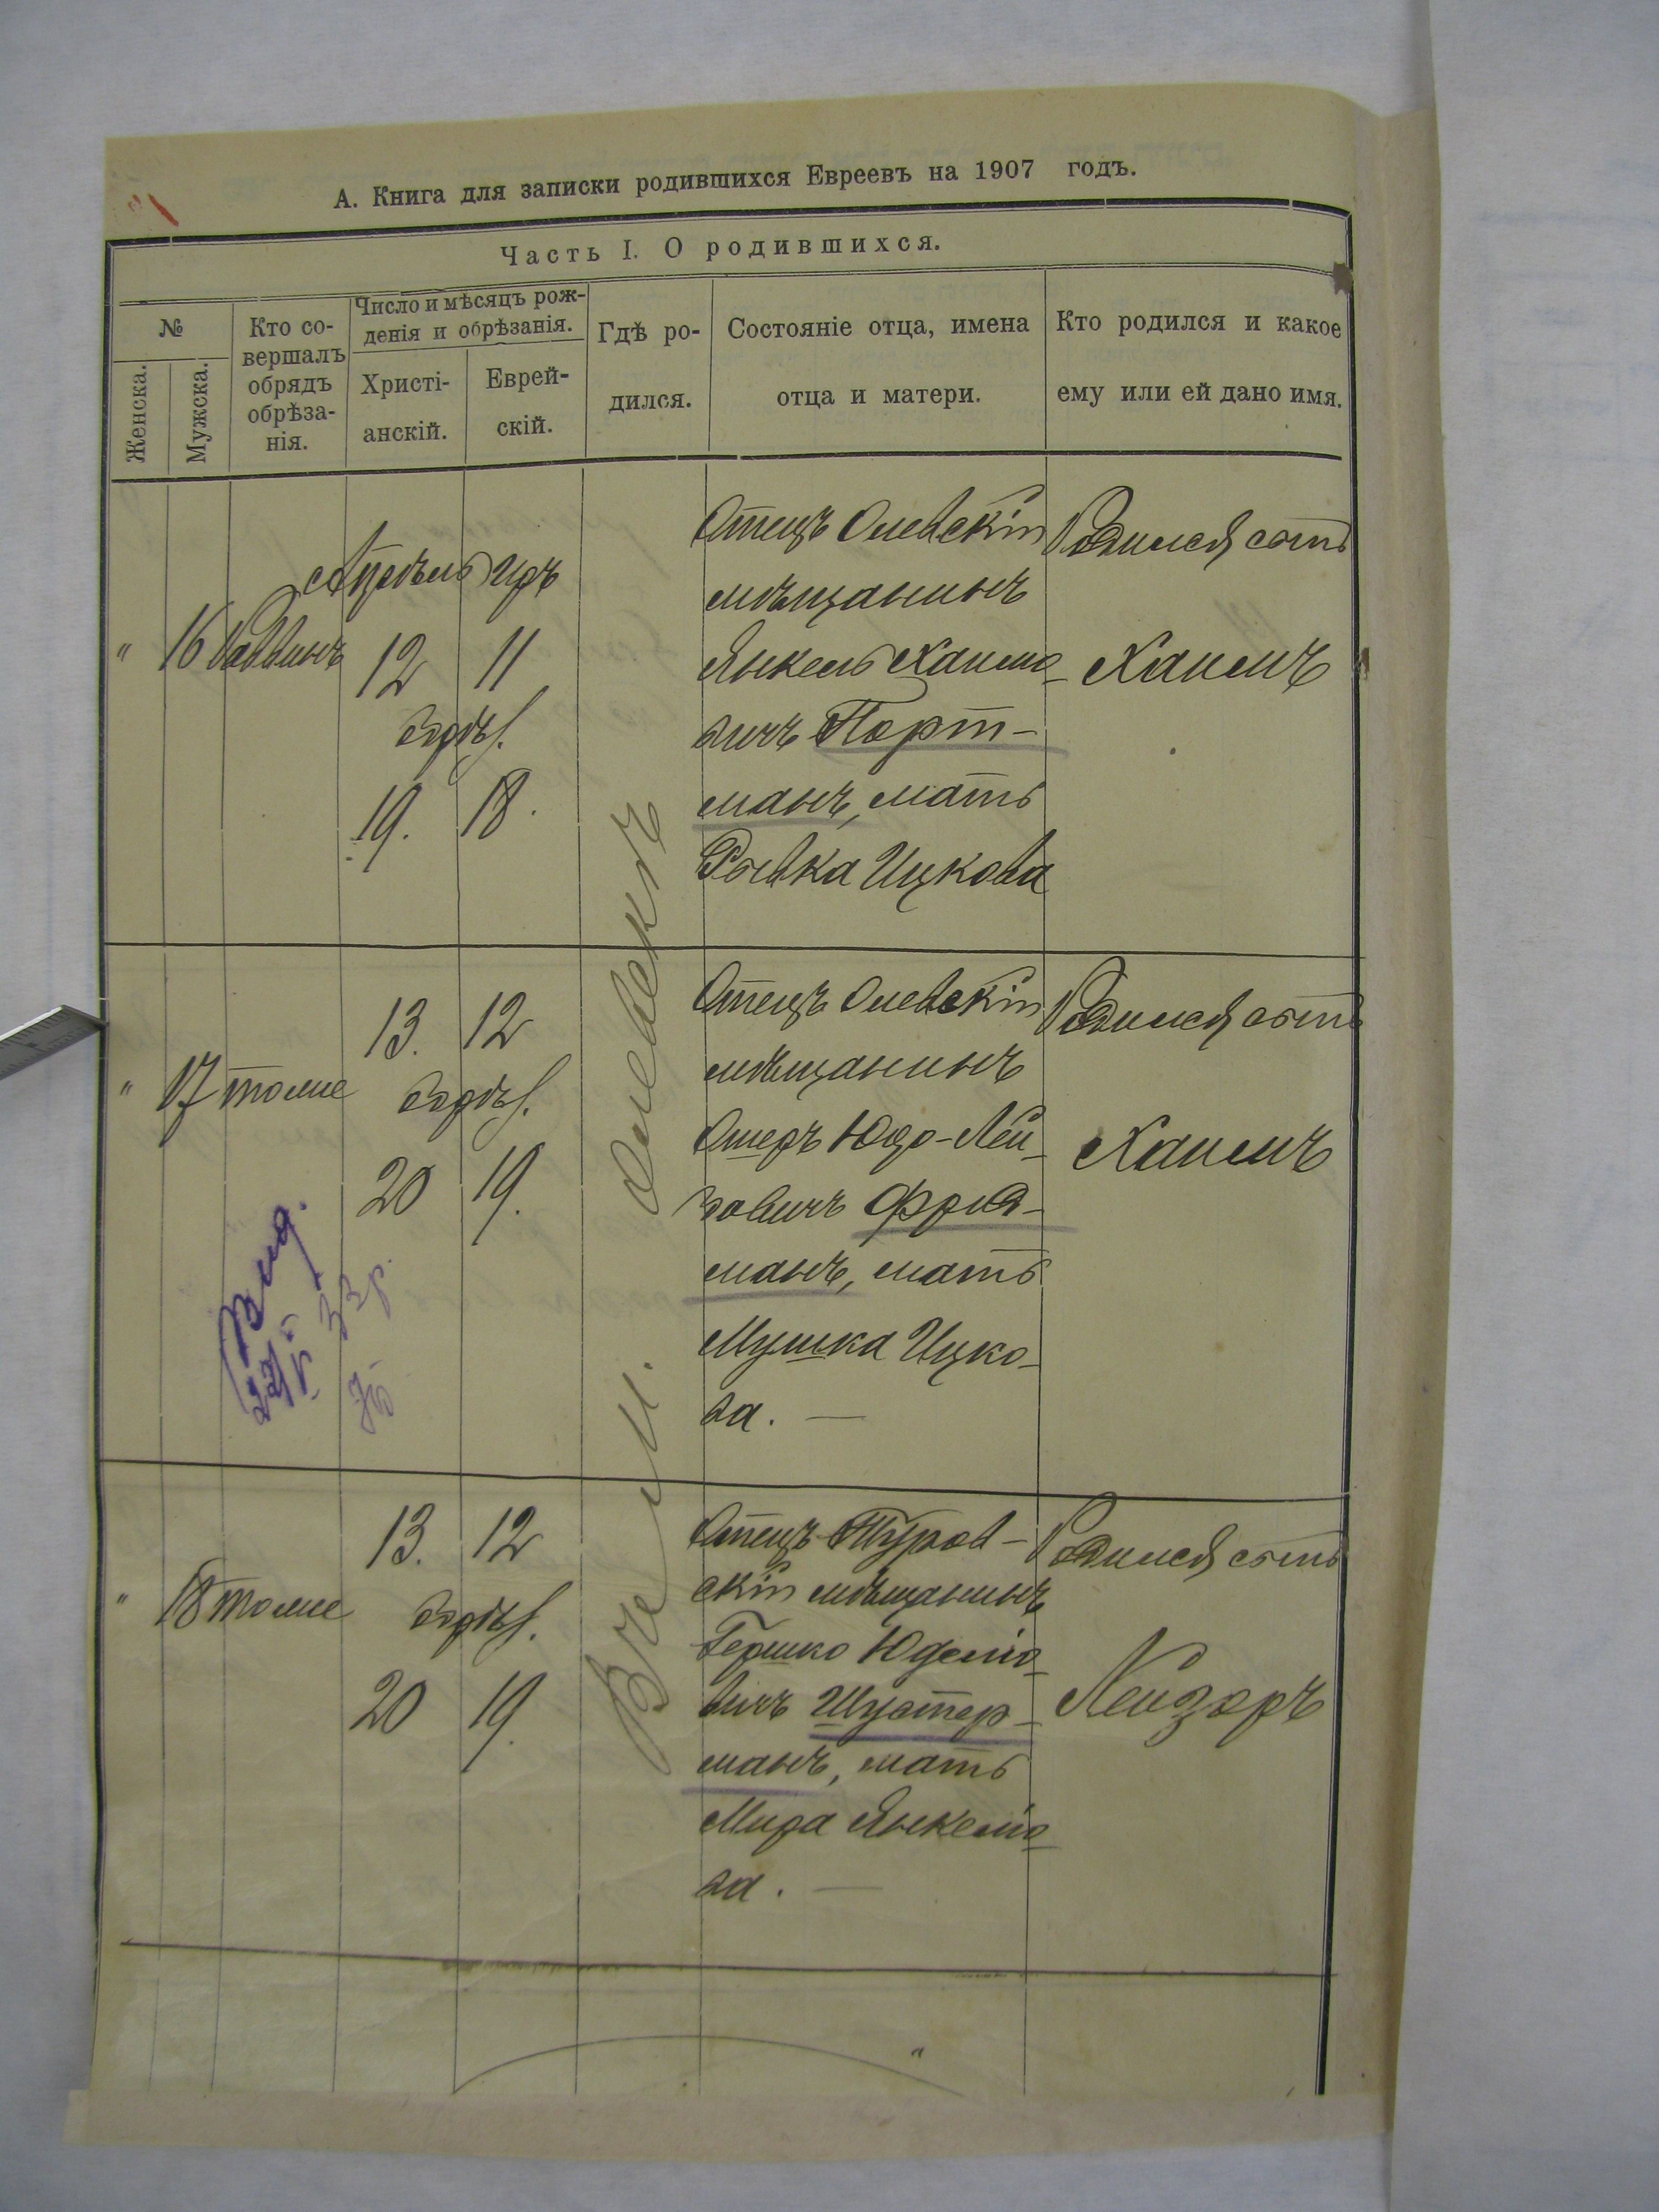 А. Книга для записки родившихся Евреевъ на 1907 годъ.
Часть I. О родившихся.
№
Женска.
Мужска.
Кто со-
вершалъ
обрядъ
обрѣза-
нія.
Число и мѣсяцъ рож-
денія и обрѣзанія.
Христі-
анскій.
Еврей-
скій.
Гдѣ ро-
дился.
Состояніе отца, имена
отца и матери.
Кто родился и какое
ему или ей дано имя.
" 16 Раввинъ
Апрѣль Иръ
12 11
19. 18.
Отецъ Олевскій
мѣщанинъ
Янкель Хаимо-
вичъ Порт-
манъ, мать
Рывка Ицкова
Родился сынъ
Хаимъ
Въ м. Олевскъ
" 17 тоже
13. 12
20 19.
Отецъ Олевскій
мѣщанинъ
Ошеръ Юдо-Лей-
зовичъ Фрид-
манъ, мать
Мушка Ицко-
ва. —
Родился сынъ
Хаимъ
" 18 тоже
13. 12
20 19.
Отецъ Туров-
скій мѣщанинъ
Гершко Юделіо-
вичъ Шустер-
манъ, мать
Янкеліо-
ва. —
Родился сынъ
Лейзоръ